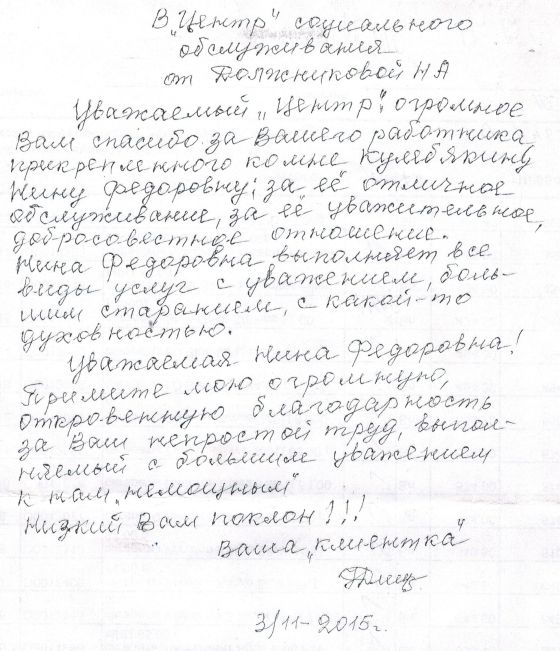 В „Центр" социального
обслуживания
от Должниковой НА
Уважаемый „Центр", огромное
Вам спасибо за Вашего работника
прикрепленного ко мне Кулебякину
Нину Федоровну; за её отличное
обслуживание, за её уважительное,
добросовестное отношение.
Нина Федоровна выполняет все
виды услуг с уважением, боль-
шим старанием, с какой-то
духовностью.
Уважаемая Нина Федоровна!
Примите мою огромную,
откровенную благодарность
за Ваш непростой труд, выпол-
няемый с большим уважением
к нам „немощным"
Низкий Вам поклон!!!
Ваша „клиентка"
3/11-2015г.